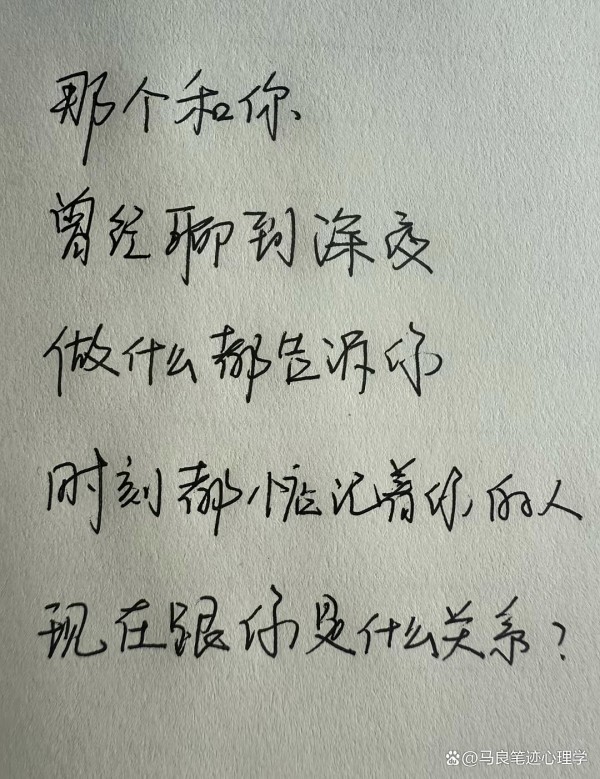 那个和你
曾经聊到深夜
做什么都告诉你
时刻都惦记着你的人
现在跟你是什么关系?
马良笔迹心理学